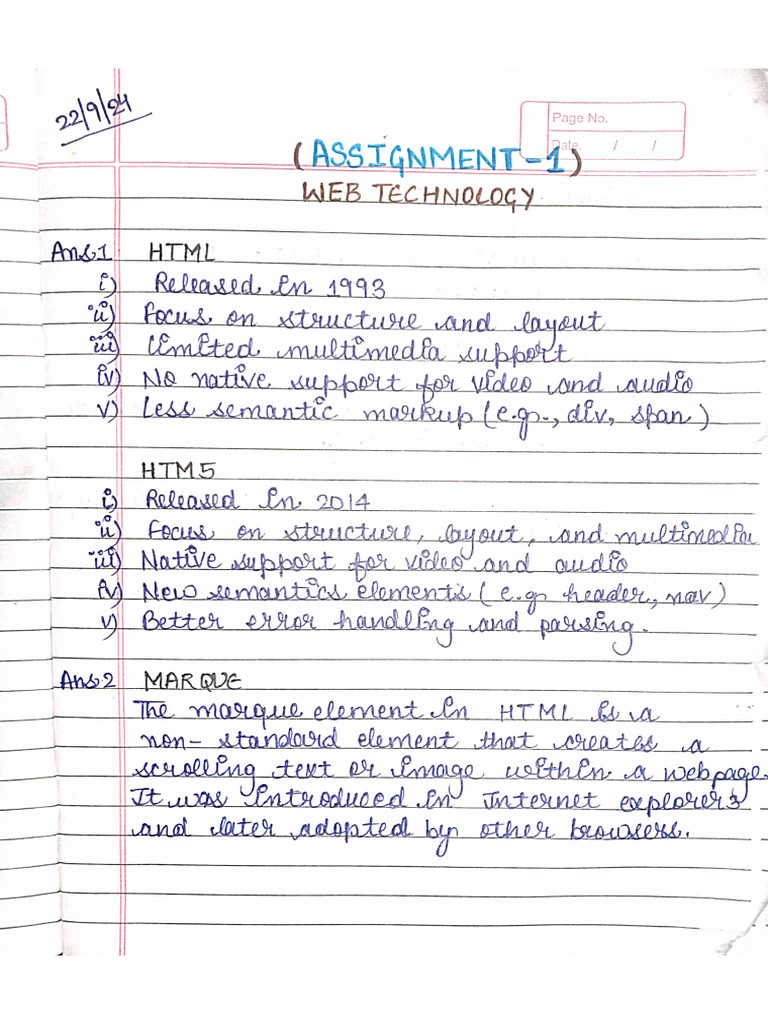 22/9/24
Page No.
Date. / /
(ASSIGNMENT-1)
WEB TECHNOLOGY
Ans1 HTML
i) Released in 1993
ii) Focus on structure and layout
iii) limited multimedia support
iv) No native support for video and audio
v) Less semantic markup (e.g., div, span)
HTM5
i) Released in 2014
ii) Focus on structure, layout, and multimedia
iii) Native support for video and audio
iv) New semantics elements (e.g. header, nav)
v) Better error handling and parsing.
Ans2 MARQUE
The marque element in HTML is a
non-standard element that creates a
scrolling text or image within a webpage.
It was introduced in Internet explorer3
and later adopted by other browsers.